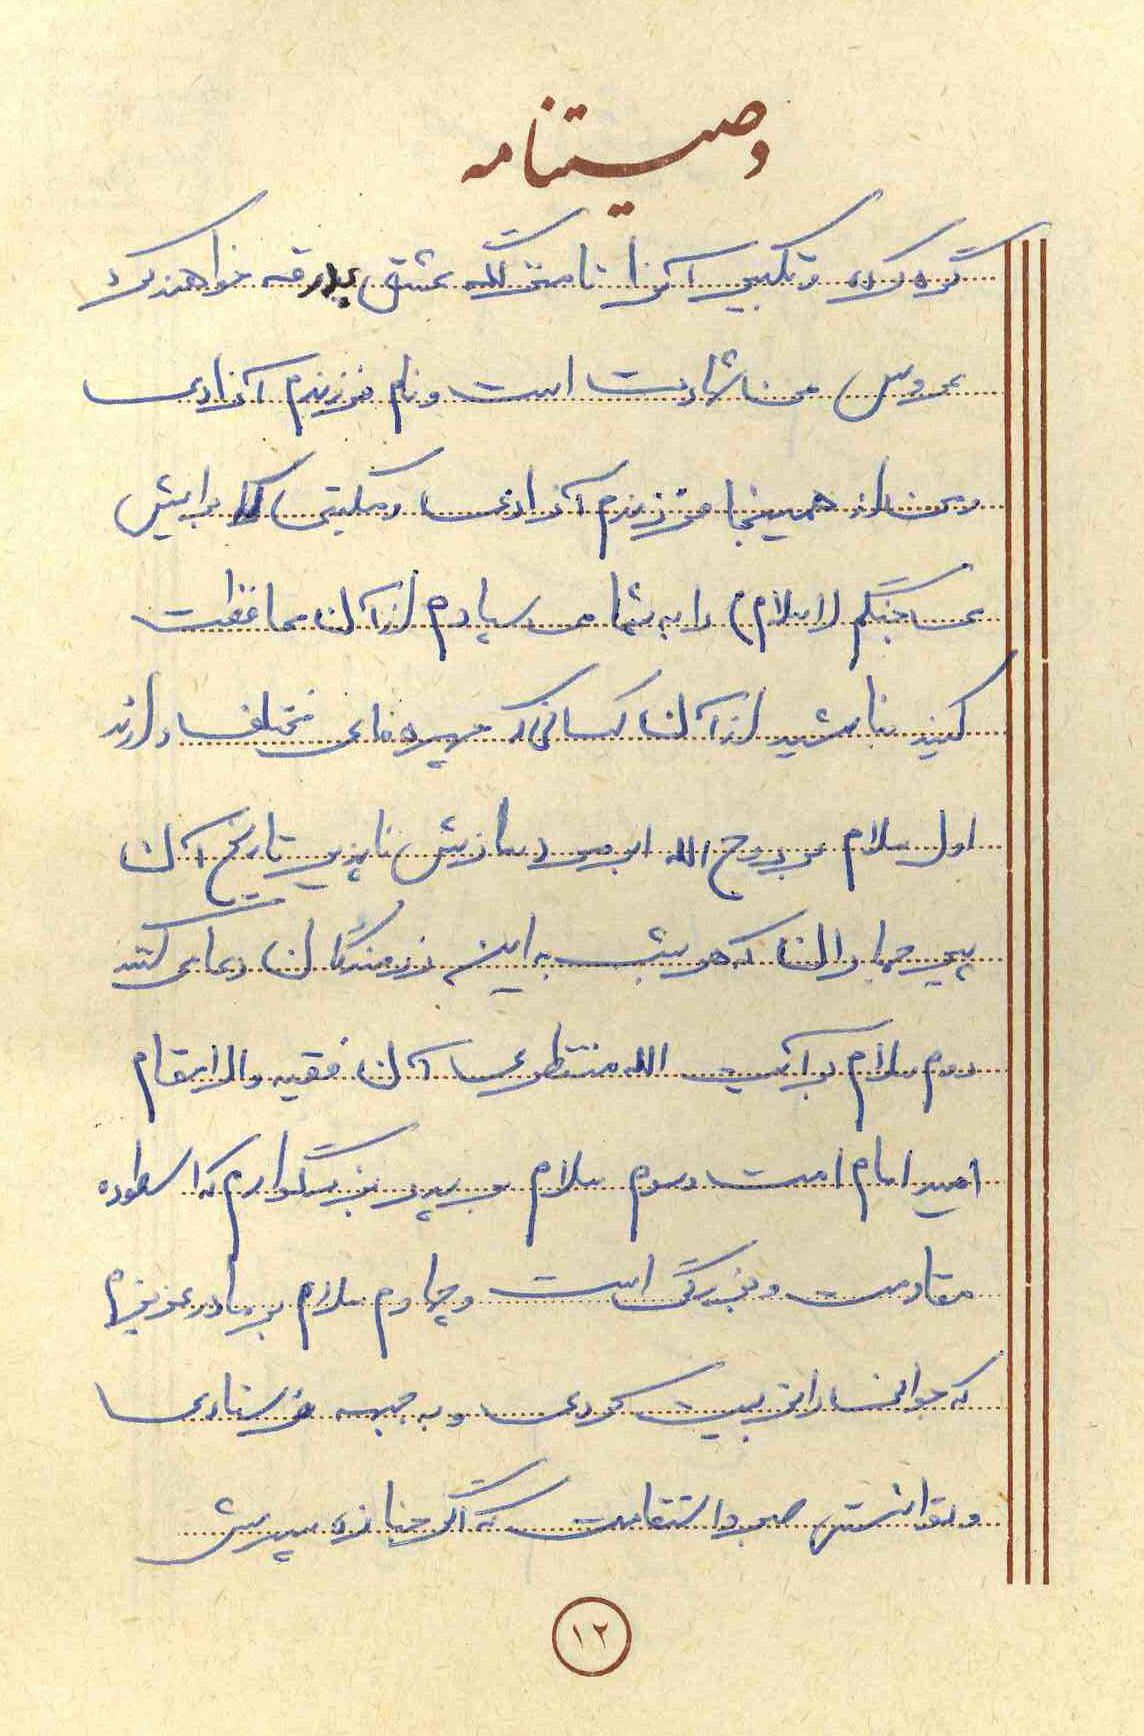 وصیتنامه
گره کرده و تکبیر آنرا تا سنگر عشق بدرقه خواهند کرد
عروس من شهادت است و نام فرزندم آزادی
ومن از همینجا فرزندم آزادی و مکتبی که برایش
می جنگم (اسلام) را به شما می سپارم از آن محافظت
کنید نباشید از آن کسانی که چهره های مختلف دارند
اول سلام بر روح الله ابر مرد سازش ناپذیر تاریخ آن
پیر جماران که هر شب به این رزمندگان دعا می کند
دوم سلام بر آیت الله منتظری آن فقیه والا مقام
امید امام امت وسوم سلام بر پدر بزرگوارم که اسطوره
مقاومت و بزرگی است و چهارم سلام بر مادر عزیزم
که جوانی را تربیت کردی و به جبهه فرستادی
و صبر و استقامت که اگر جنازه پسرش
۱۲